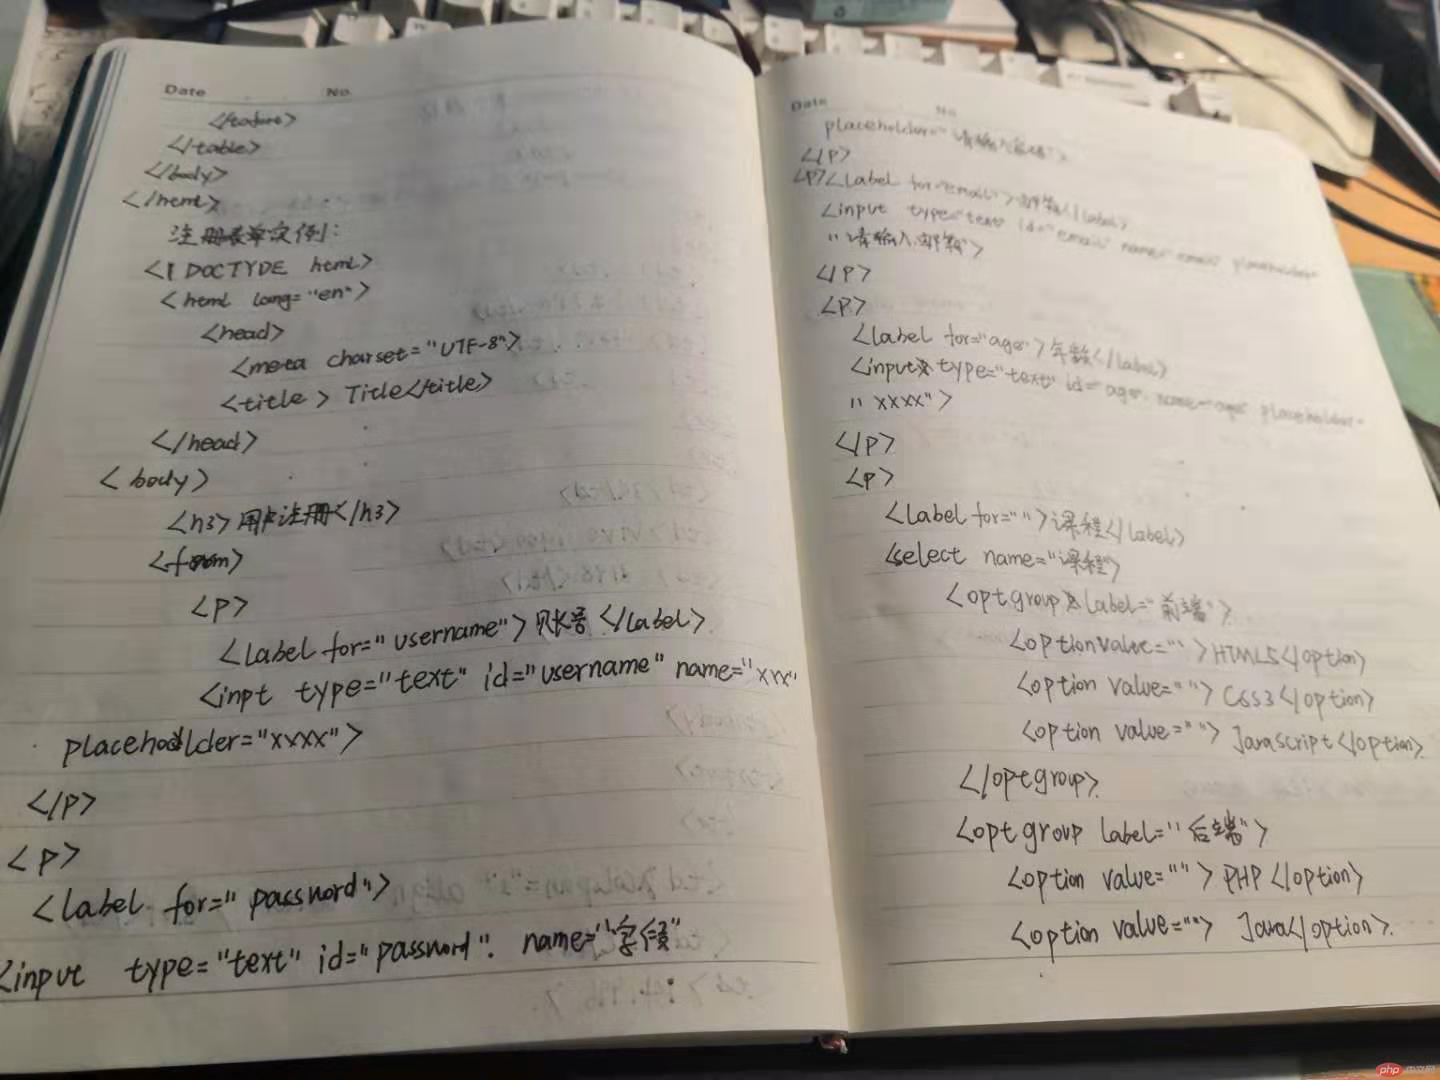 Date No.
</tabare>
</table>
</body>
</html>
注册表单实例:
<! DOCTYDE html>
<html lang="en">
<head>
<meta charset="UTF-8">
<title> Title</title>
</head>
<body>
<h3>用户注册</h3>
<form>
<p>
<label for="username">账号</label>
<inpt type="text" id="username" name="xxx"
placeholder="xxxx">
</p>
<p>
<label for="password">
<input type="text" id="password". name="字段"
Date No
placeholder="请输入
</p>
<p><label for="email">邮箱</label>
<input type="text" id="email" name="email" placeholder=
"请输入邮箱">
</p>
<p>
<label for="age">年龄</label>
<input type="text" id="age" name="age" placeholder=
"xxxx">
</p>
<p>
<label for="">课程</label>
<select name="课程">
<optgroup label="前端">
<option value="">HTML5</option>
<option value="">CSS3</option>
<option value="">Javascript</option>
</optgroup>
<optgroup label="后端">
<option value="">PHP</option>
<option value=""> Java</option>
php 中文网